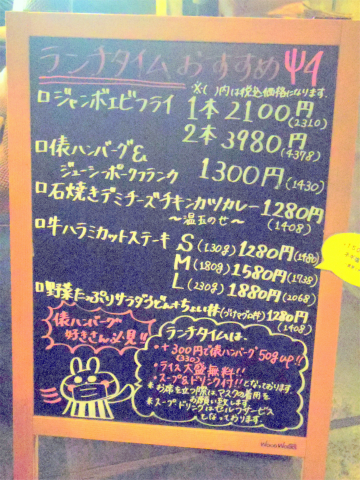 ランチタイム おすすめ 4
※( )円は税込価格になります.
ロジャンボエビフライ 1本 2100円(2310)
2本 3980円(4378)
ロ俵ハンバーグ&
ジューシーポークフランク 1300円(1430)
ロ石焼きデミチーズチキンカツカレー 1280円(1408)
〜温玉のせ〜
ロ牛ハラミカットステーキ S(130g) 1280円(1480)
M(180g) 1580円(1738)
L(230g) 1880円(2068)
ロ野菜たっぷりサラダうどん+ちょい丼(づけマグロ丼) 1280円(1408)
俵ハンバーグ
好きさん必見!!
ランチタイムは、
・+300円で俵ハンバーグ50gup!!
(330)
・ライス大盛無料!!
・スープ&ドリンク付!!となっております.
※お席を立つ際はマスクの着用を
お願い致します.
※スープドリンクはセルフサービス
となっております.